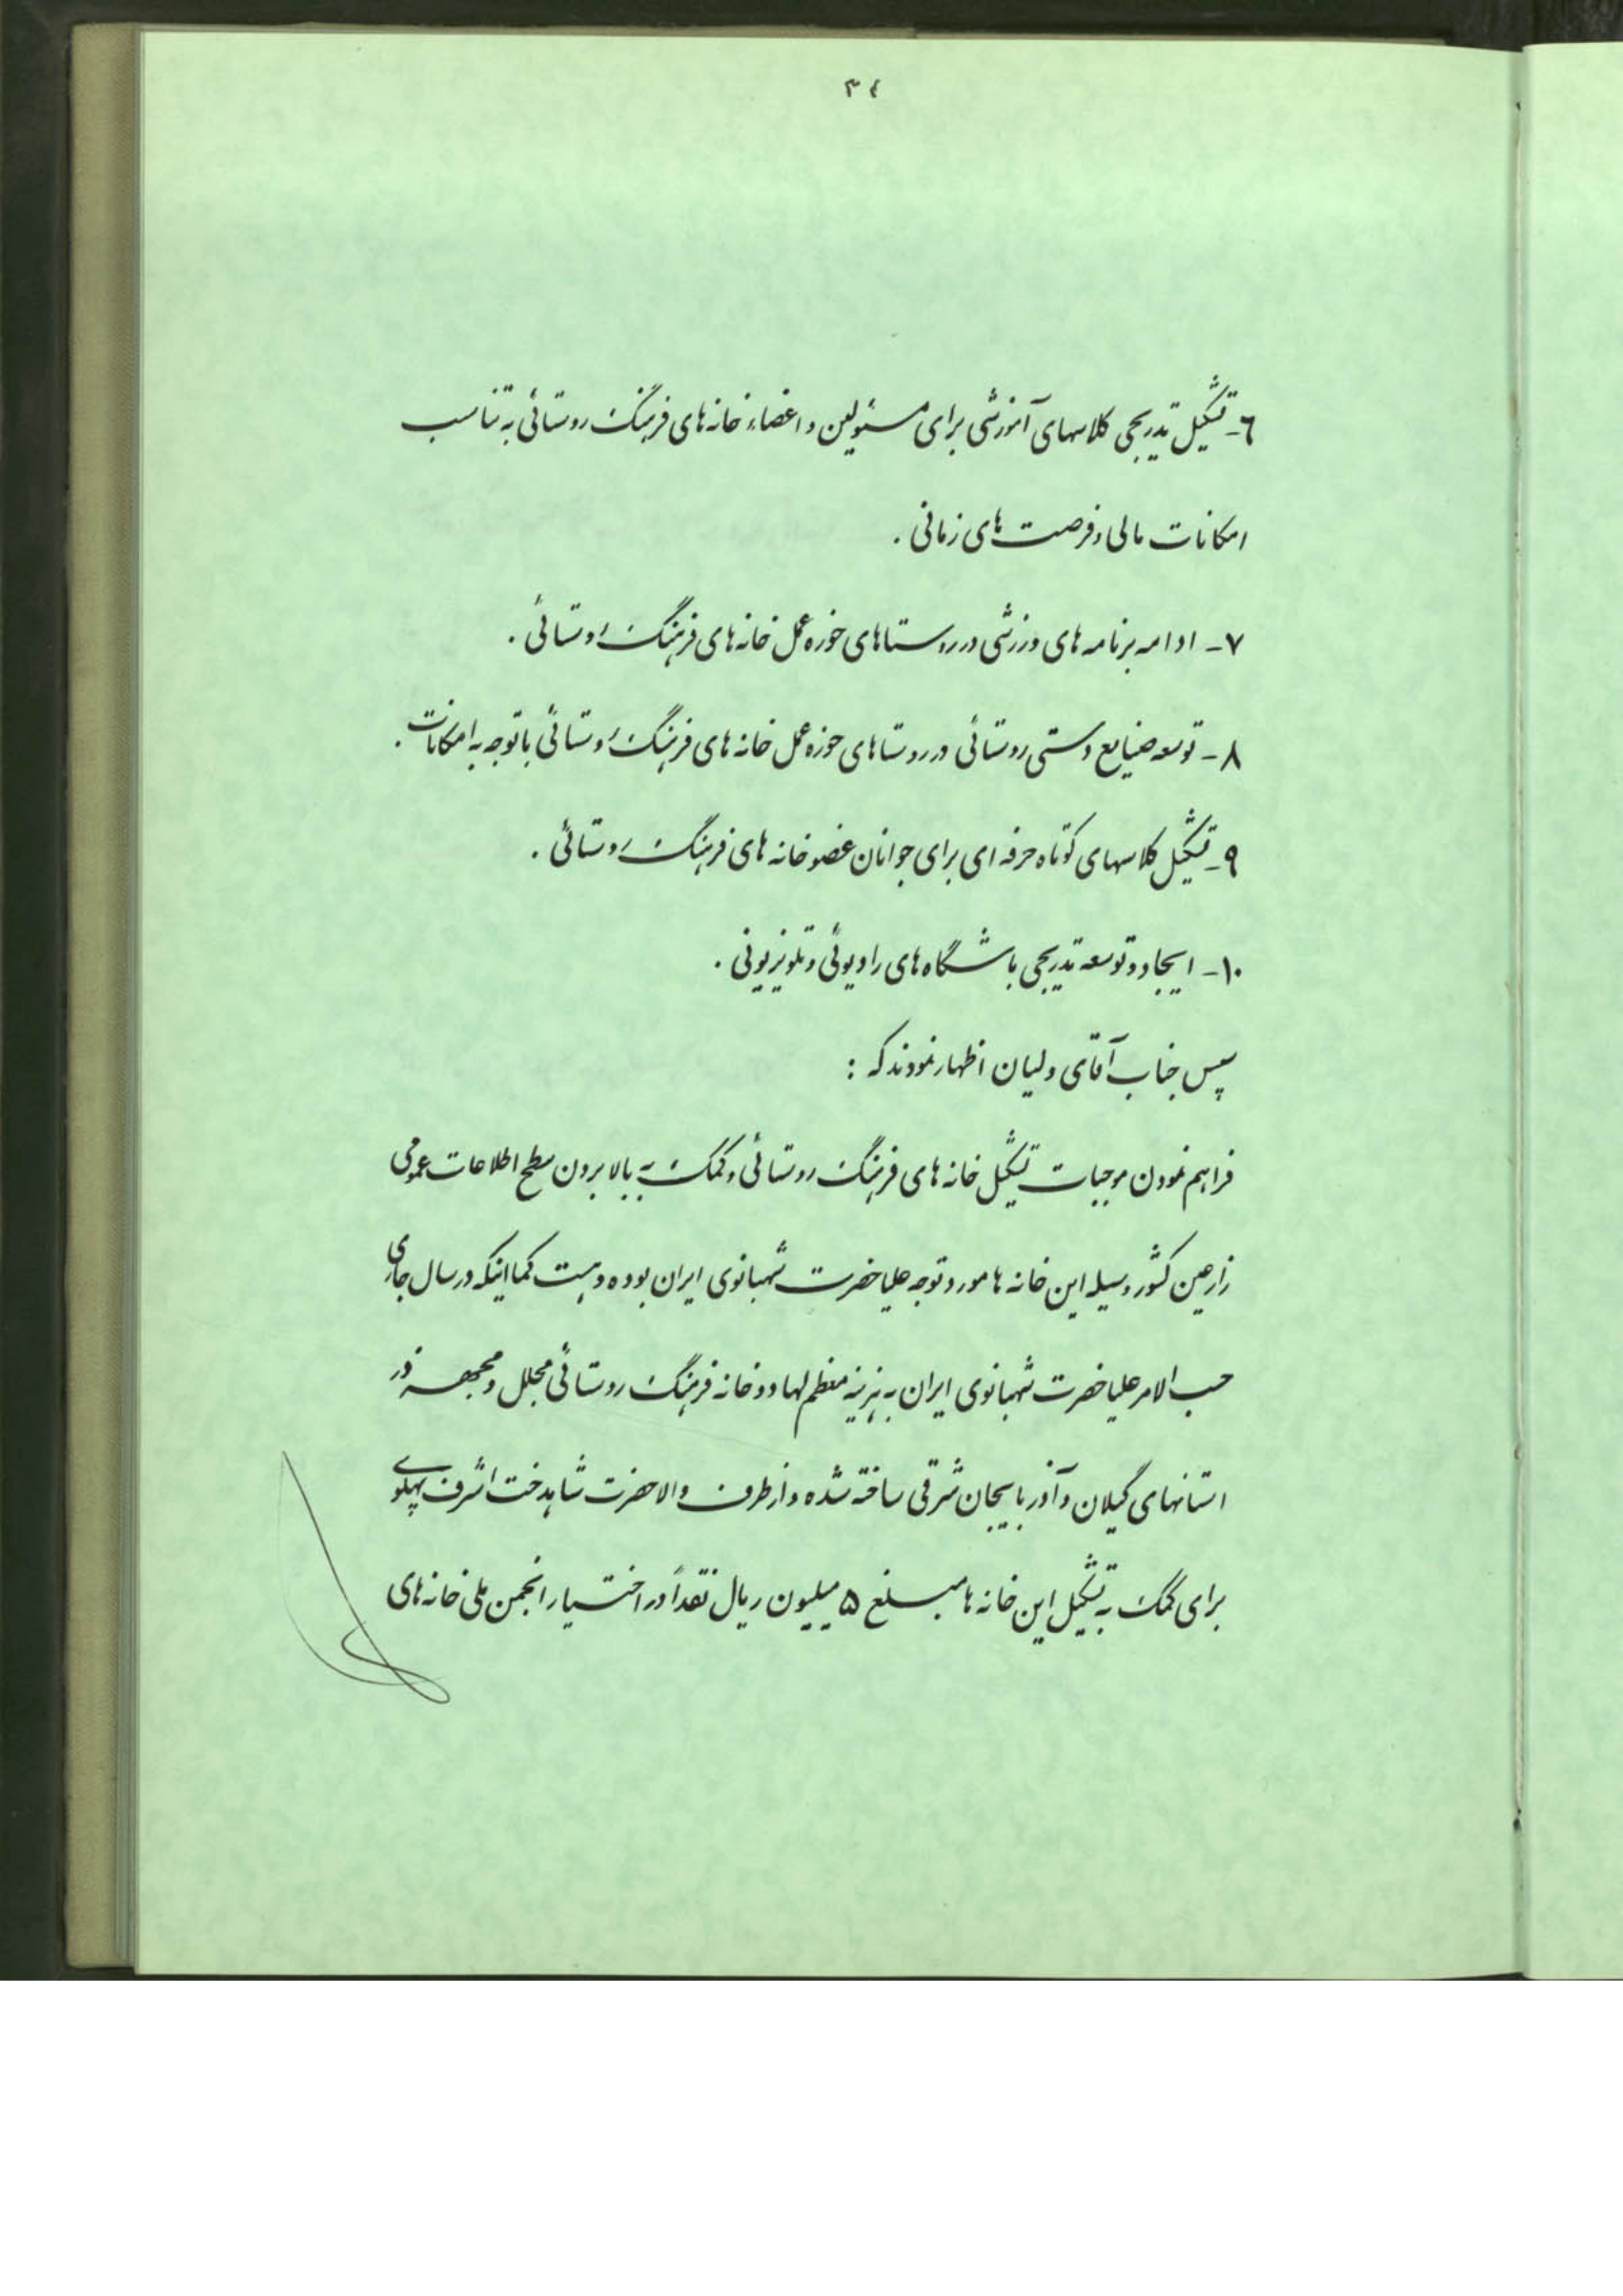 ۳٤
٦- تشکیل تدریجی کلاسهای آموزشی برای مسئولین و اعضاء خانه های فرهنگ روستائی به تناسب
امکانات مالی و فرصت های زمانی .
۷- ادامه برنامه های ورزشی در روستاهای حوزه عمل خانه های فرهنگ روستائی .
۸- توسعه صنایع دستی روستائی در روستاهای حوزه عمل خانه های فرهنگ روستائی با توجه به امکانات .
۹- تشکیل کلاسهای کوتاه حرفه ای برای جوانان عضو خانه های فرهنگ روستائی .
۱۰- ایجاد و توسعه تدریجی باشگاه های رادیوئی و تلویزیونی .
سپس جناب آقای ولیان اظهار نمودند که :
فراهم نمودن موجبات تشکیل خانه های فرهنگ روستائی و کمک به بالا بردن سطح اطلاعات عمومی
زارعین کشور وسیله این خانه ها مورد توجه علیاحضرت شهبانوی ایران بوده و هست کما اینکه در سال جاری
حسب الامر علیاحضرت شهبانوی ایران به هزینه معظم لها دو خانه فرهنگ روستائی مجلل و مجهز در
استانهای گیلان و آذربایجان شرقی ساخته شده و از طرف والاحضرت شاهدخت اشرف پهلوی
برای کمک به تشکیل این خانه ها مبلغ ۵ میلیون ریال نقداً در اختیار انجمن ملی خانه های